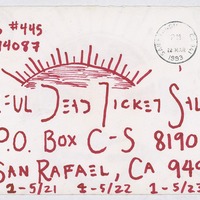 #445
94087
EFUL DEAD TICKET SAL
P.O. BOX C-S 8190
SAN RAFAEL, CA 949
1-5/21 4-5/22 1-5/23
1993